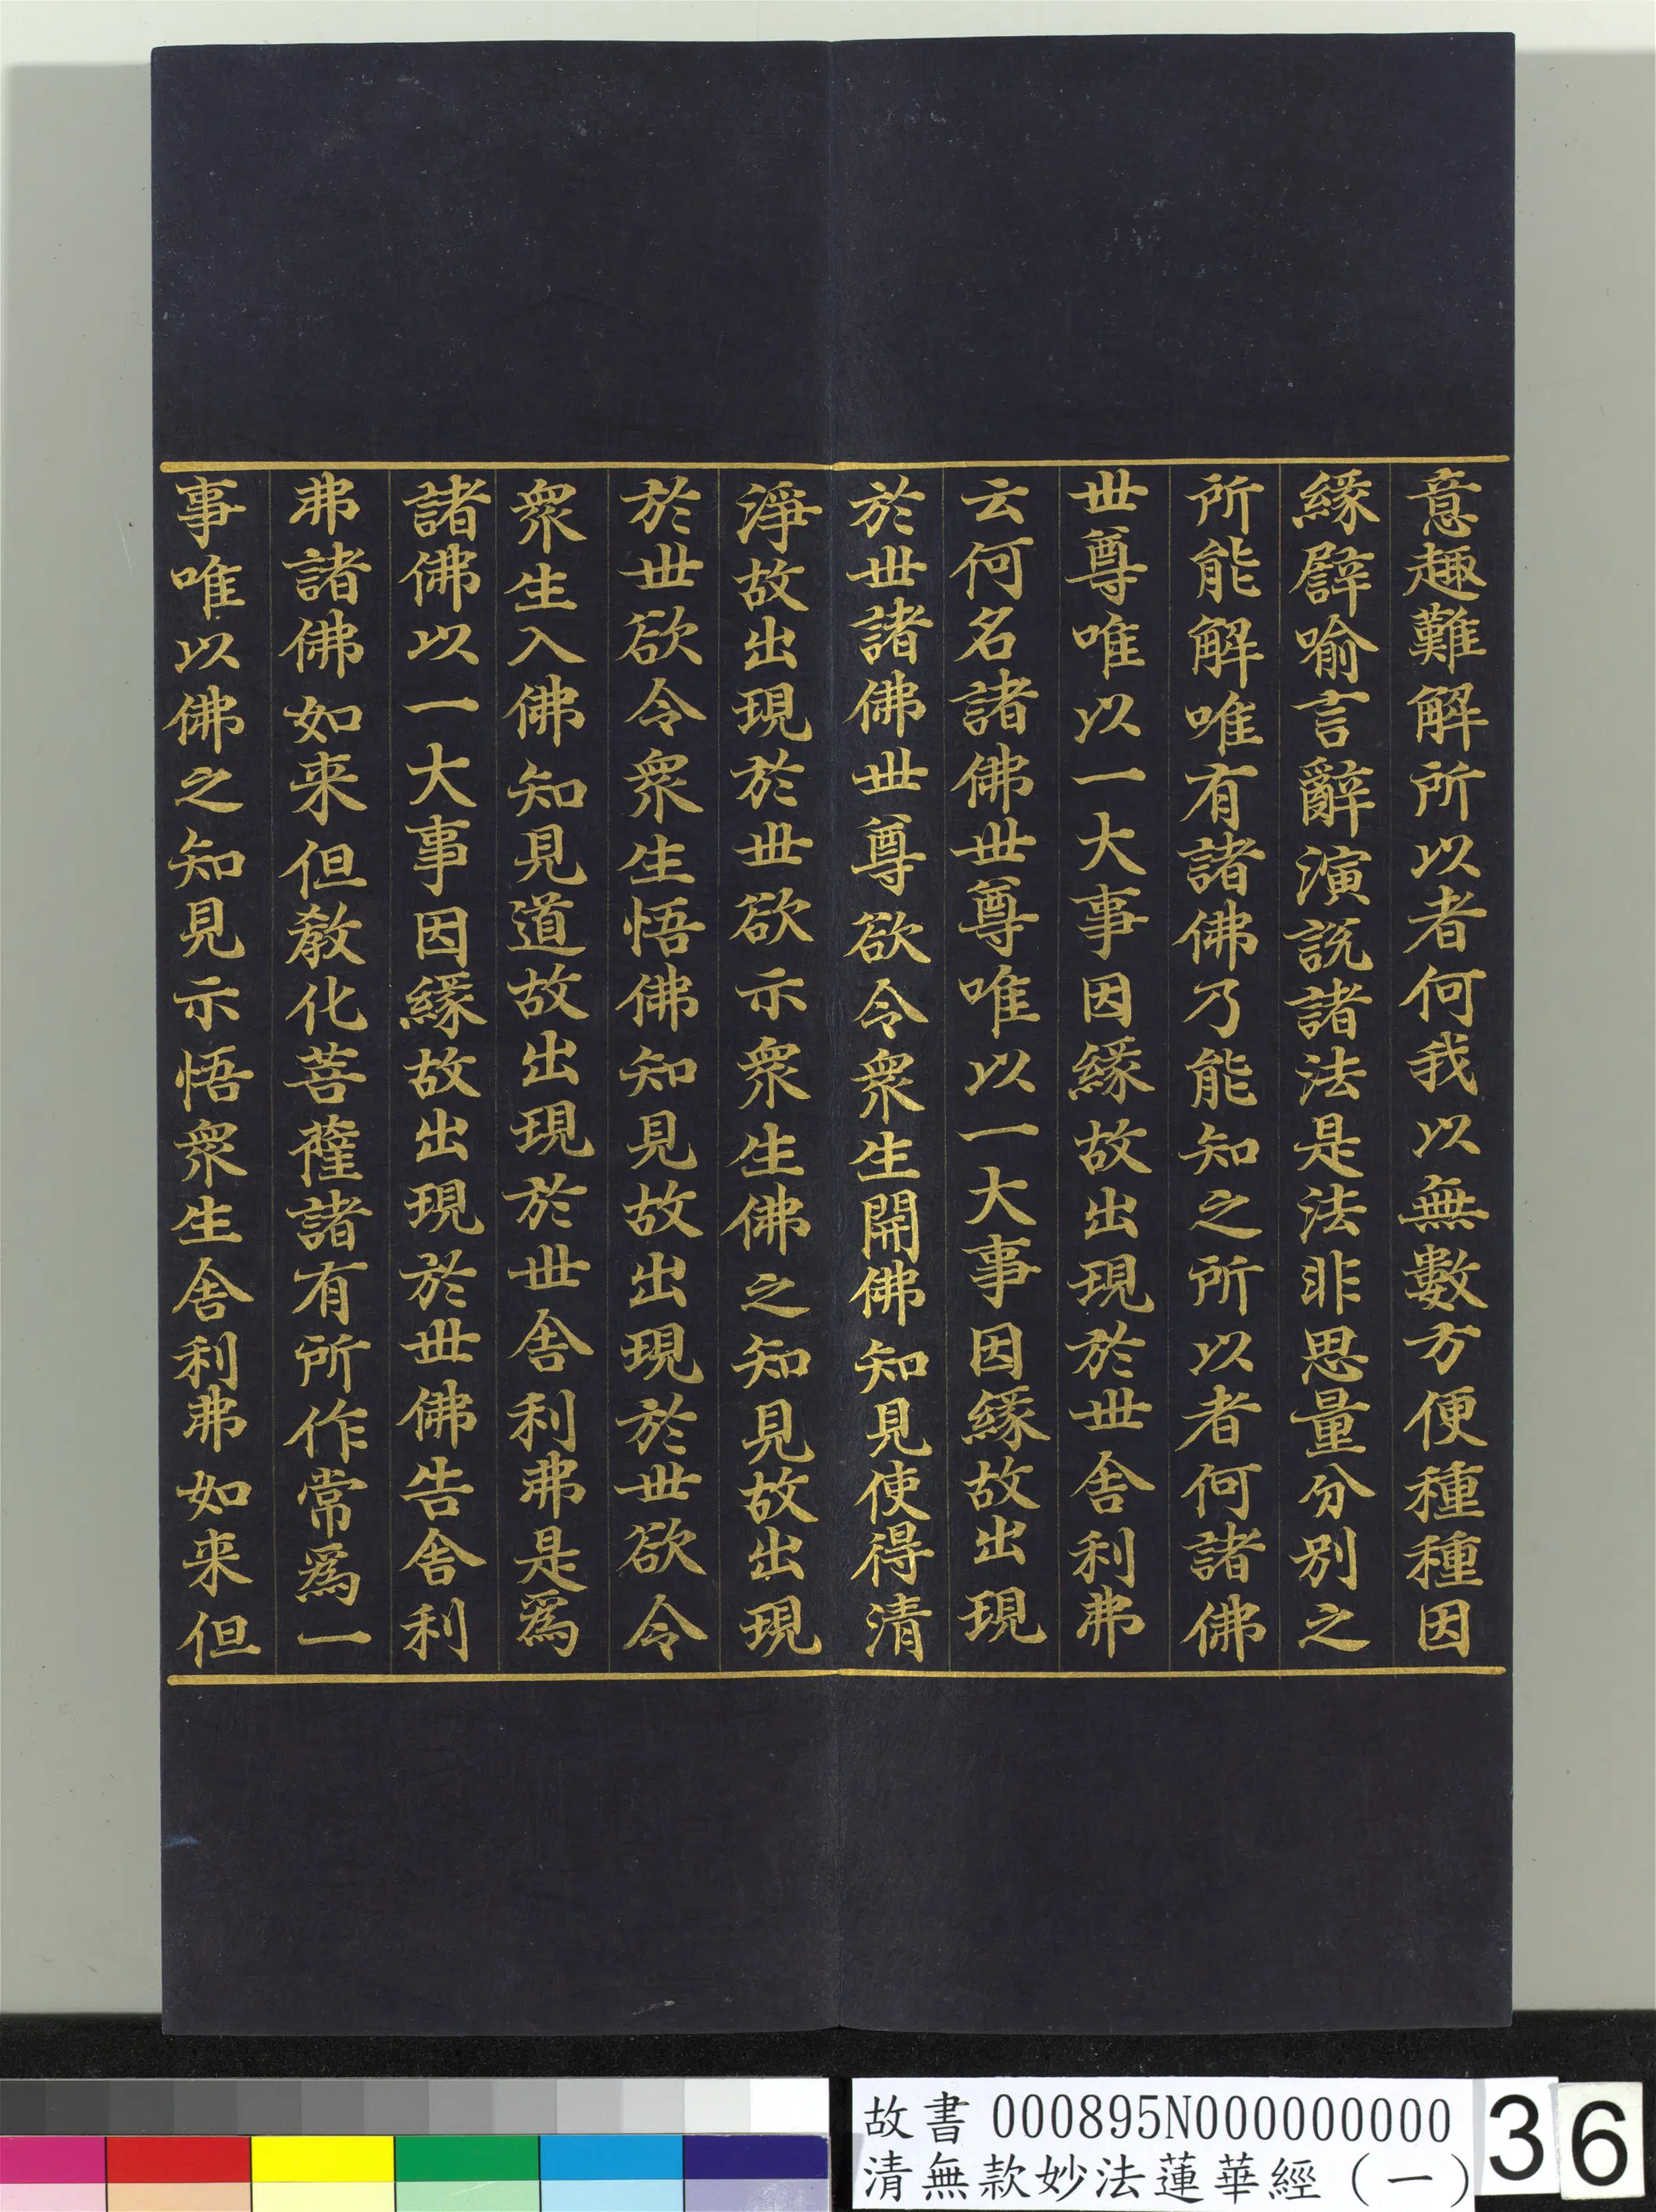 意趣難解所以者何我以無數方便種種因
緣譬喻言辭演說諸法是法非思量分別之
所能解唯有諸佛乃能知之所以者何諸佛
世尊唯以一大事因緣故出現於世舍利弗
云何名諸佛世尊唯以一大事因緣故出現
於世諸佛世尊欲令眾生開佛知見使得清
淨故出現於世欲示眾生佛之知見故出現
於世欲令眾生悟佛知見故出現於世欲令
眾生入佛知見道故出現於世舍利弗是為
諸佛以一大事因緣故出現於世佛告舍利
弗諸佛如来但教化菩薩諸有所作常為一
事唯以佛之知見示悟眾生舍利弗如来但
故書 000895N000000000
清無款妙法蓮華經（一）
36